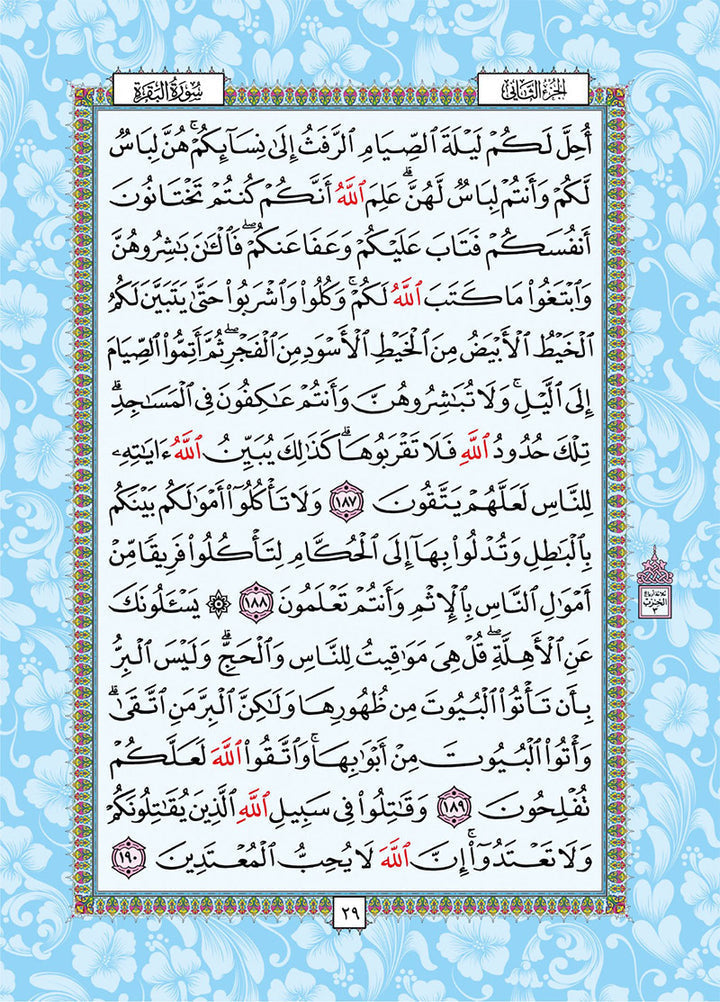 الجزء الثاني
سورة البقرة
أُحِلَّ لَكُمۡ لَيۡلَةَ ٱلصِّيَامِ ٱلرَّفَثُ إِلَىٰ نِسَآئِكُمۡۚ هُنَّ لِبَاسٞ
لَّكُمۡ وَأَنتُمۡ لِبَاسٞ لَّهُنَّۗ عَلِمَ ٱللَّهُ أَنَّكُمۡ كُنتُمۡ تَخۡتَانُونَ
أَنفُسَكُمۡ فَتَابَ عَلَيۡكُمۡ وَعَفَا عَنكُمۡۖ فَٱلۡـَٰٔنَ بَٰشِرُوهُنَّ
وَٱبۡتَغُواْ مَا كَتَبَ ٱللَّهُ لَكُمۡۚ وَكُلُواْ وَٱشۡرَبُواْ حَتَّىٰ يَتَبَيَّنَ لَكُمُ
ٱلۡخَيۡطُ ٱلۡأَبۡيَضُ مِنَ ٱلۡخَيۡطِ ٱلۡأَسۡوَدِ مِنَ ٱلۡفَجۡرِۖ ثُمَّ أَتِمُّواْ ٱلصِّيَامَ
إِلَى ٱلَّيۡلِۚ وَلَا تُبَٰشِرُوهُنَّ وَأَنتُمۡ عَٰكِفُونَ فِي ٱلۡمَسَٰجِدِۗ
تِلۡكَ حُدُودُ ٱللَّهِ فَلَا تَقۡرَبُوهَاۗ كَذَٰلِكَ يُبَيِّنُ ٱللَّهُ ءَايَٰتِهِۦ
لِلنَّاسِ لَعَلَّهُمۡ يَتَّقُونَ ١٨٧ وَلَا تَأۡكُلُوٓاْ أَمۡوَٰلَكُم بَيۡنَكُم
بِٱلۡبَٰطِلِ وَتُدۡلُواْ بِهَآ إِلَى ٱلۡحُكَّامِ لِتَأۡكُلُواْ فَرِيقٗا مِّنۡ
أَمۡوَٰلِ ٱلنَّاسِ بِٱلۡإِثۡمِ وَأَنتُمۡ تَعۡلَمُونَ ١٨٨ ۞ يَسۡـَٔلُونَكَ
عَنِ ٱلۡأَهِلَّةِۖ قُلۡ هِيَ مَوَٰقِيتُ لِلنَّاسِ وَٱلۡحَجِّۗ وَلَيۡسَ ٱلۡبِرُّ
بِأَن تَأۡتُواْ ٱلۡبُيُوتَ مِن ظُهُورِهَا وَلَٰكِنَّ ٱلۡبِرَّ مَنِ ٱتَّقَىٰۗ
وَأۡتُواْ ٱلۡبُيُوتَ مِنۡ أَبۡوَٰبِهَاۚ وَٱتَّقُواْ ٱللَّهَ لَعَلَّكُمۡ
تُفۡلِحُونَ ١٨٩ وَقَٰتِلُواْ فِي سَبِيلِ ٱللَّهِ ٱلَّذِينَ يُقَٰتِلُونَكُمۡ
وَلَا تَعۡتَدُوٓاْۚ إِنَّ ٱللَّهَ لَا يُحِبُّ ٱلۡمُعۡتَدِينَ ١٩٠
الحزب
٣
٢٩